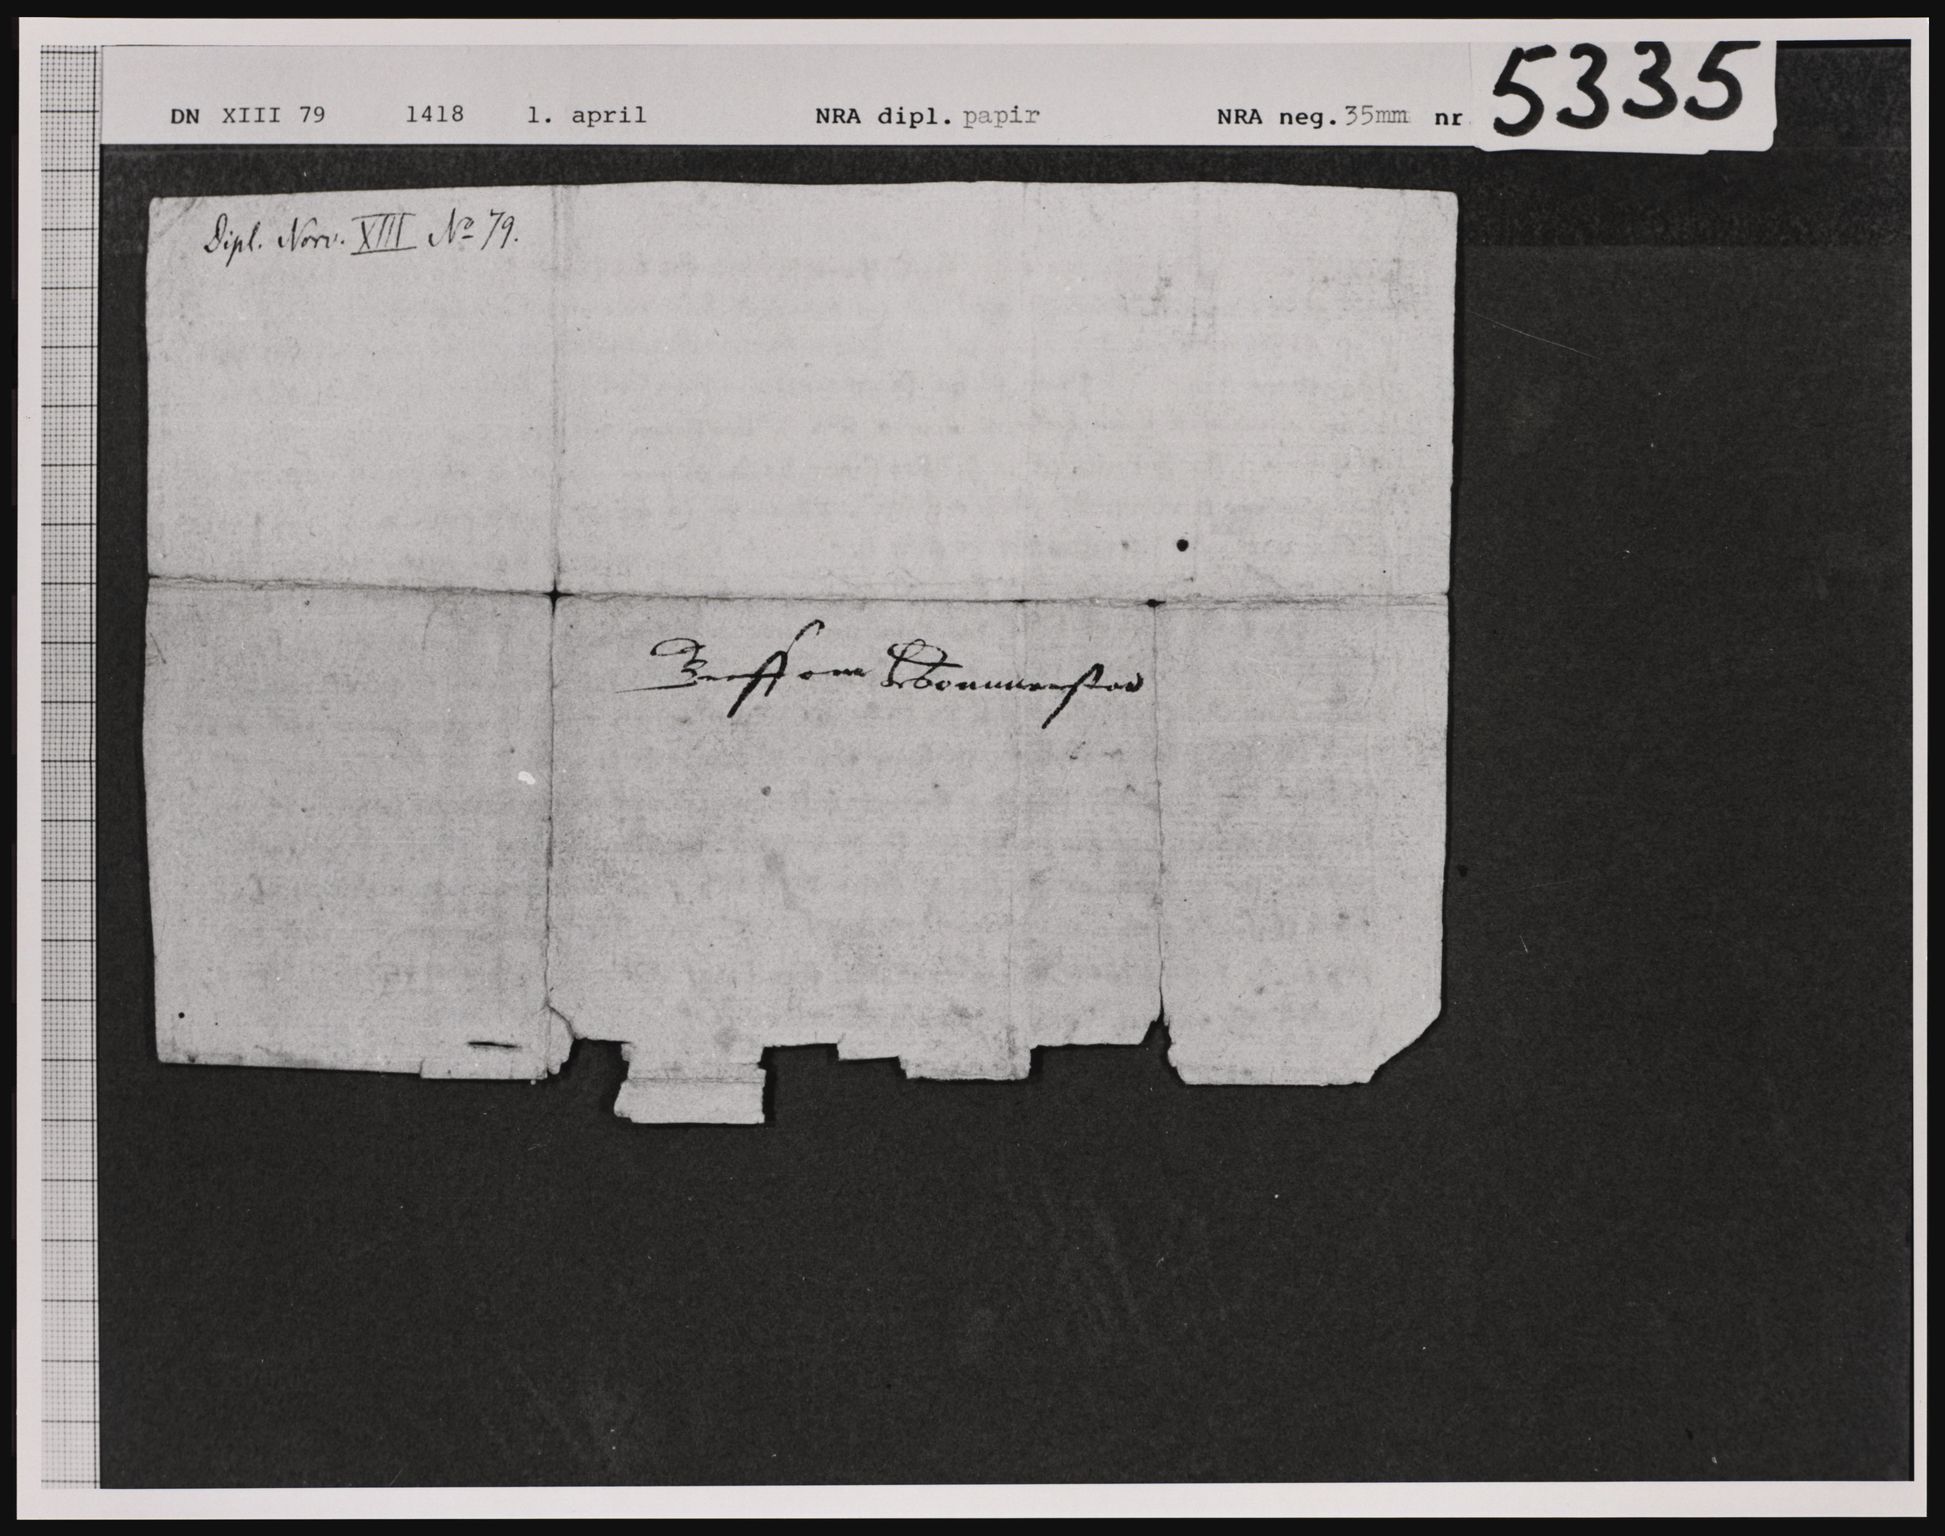 DN XIII 79 1418 1. april NRA dipl. papir NRA neg. 35mm nr 5335
Dipl. Norv. XIII No 79.
Breff om